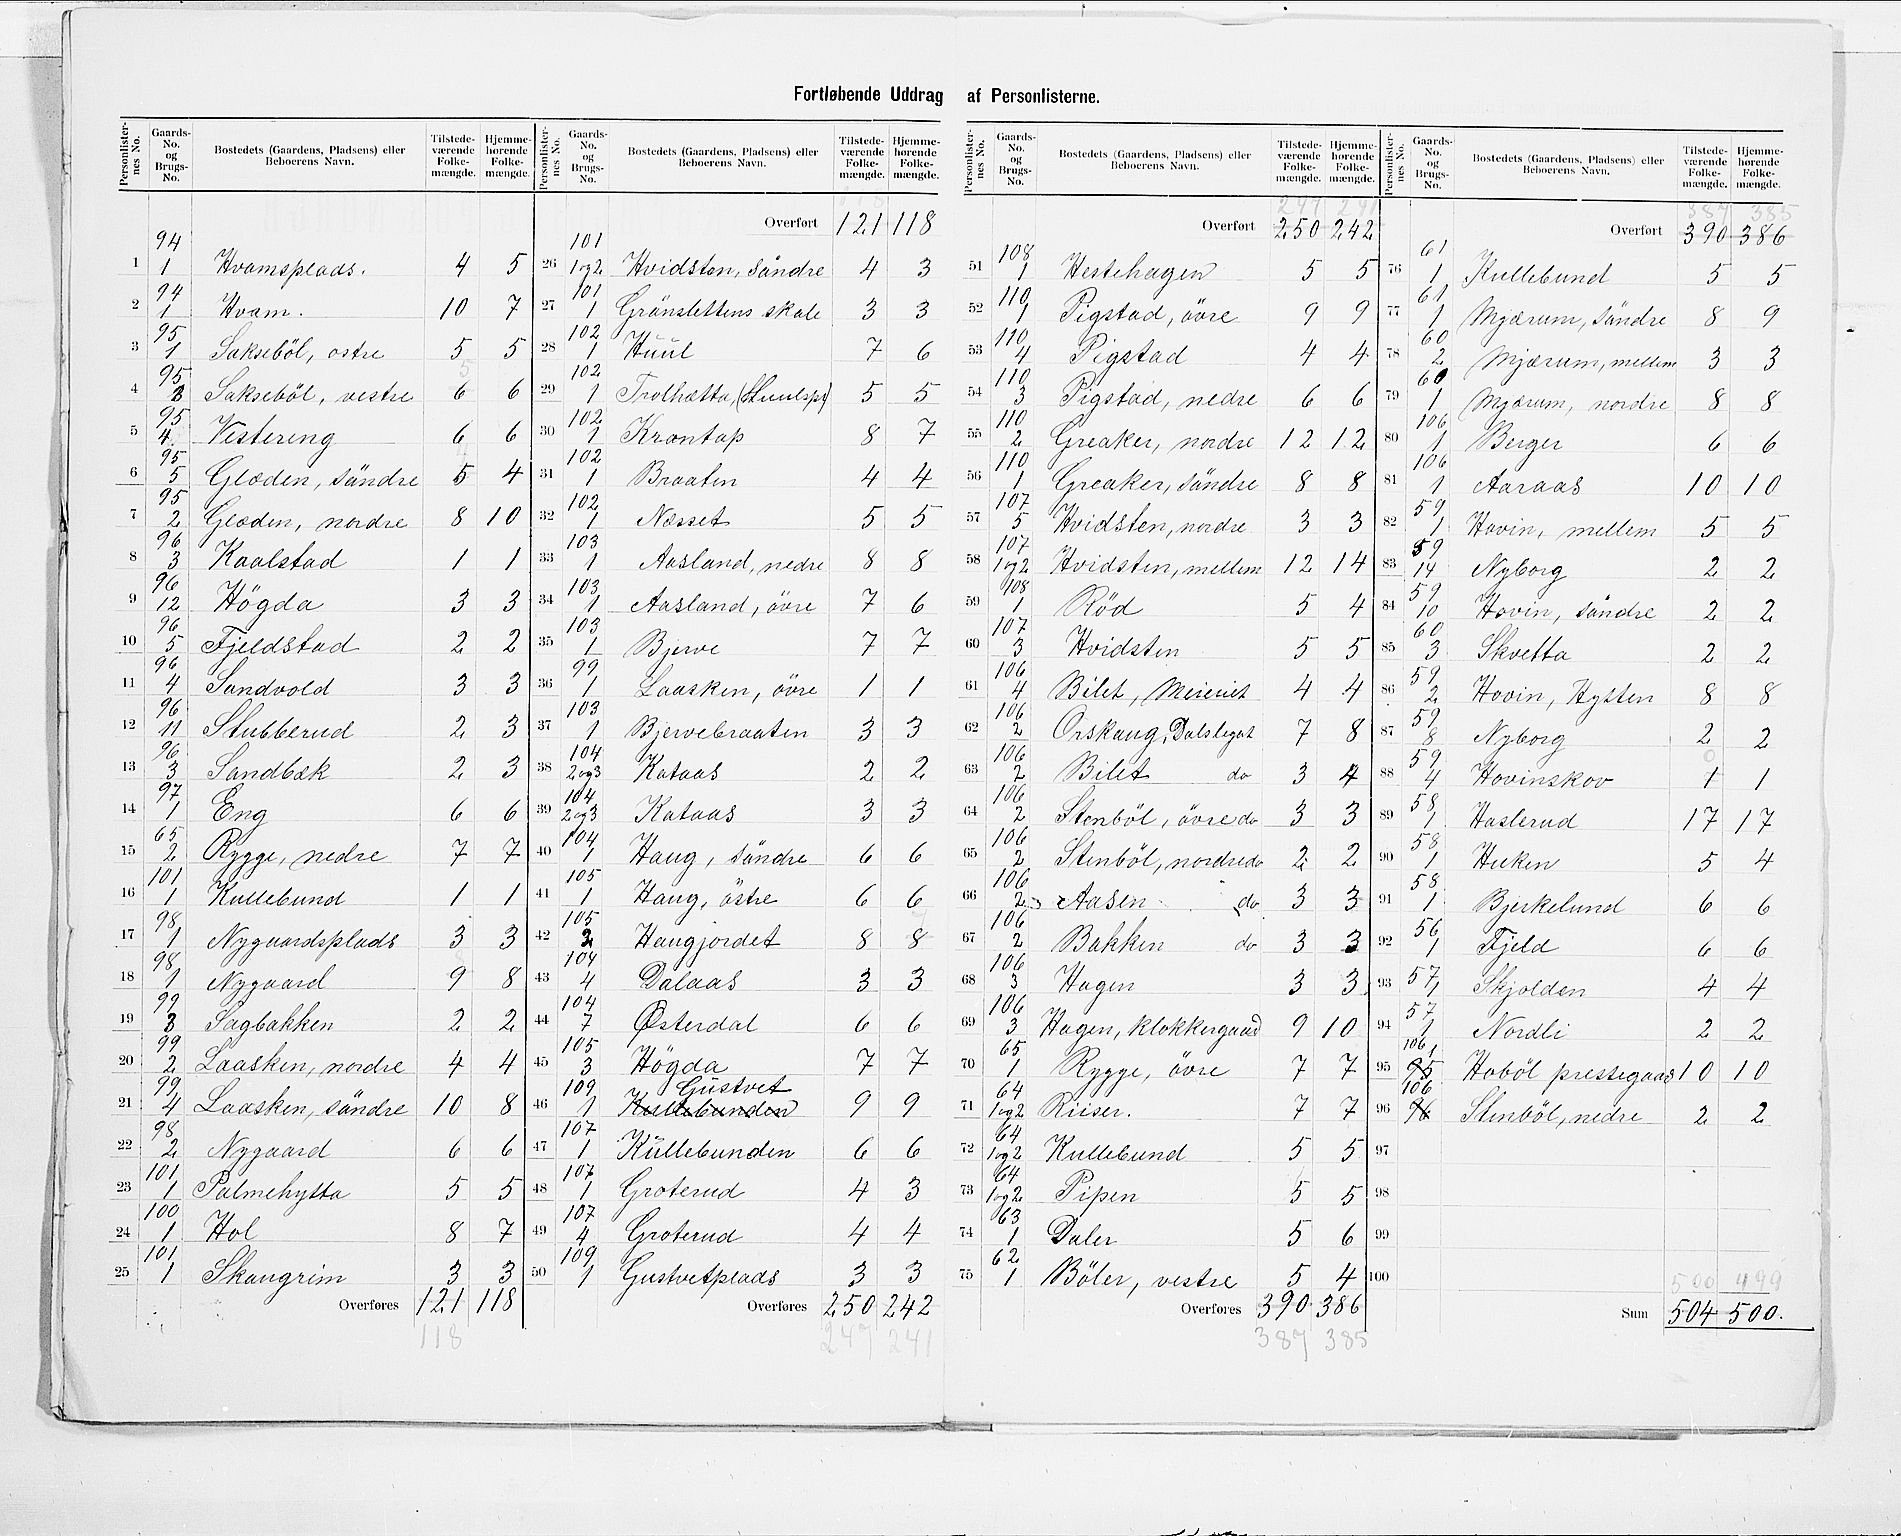 Fortløbende Uddrag af Personlisterne.
Personlisternes No. Gaards-No. og Brugs-No. Bostedets (Gaardens, Pladsens) eller Beboerens Navn. Tilstedeværende Folkemængde. Hjemmehørende Folkemængde.
1 94 1 Hvamsplads. 4 5
2 94 1 Hvam. 10 7
3 95 1 Sakseböl, østre 5 5
4 95 3 Sakseböl, vestre 6 6
5 95 4 Vestereng 6 6
6 95 5 Glæden, söndre 5 4
7 95 2 Glæden, nordre 8 10
8 96 3 Kaalstad 1 1
9 96 12 Högda 3 3
10 96 5 Fjeldstad 2 2
11 96 4 Sandvold 3 3
12 96 11 Stubberud 2 3
13 96 3 Sandbæk 2 3
14 97 1 Eng 6 6
15 65 2 Rygge, nedre 7 7
16 101 1 Kullebund 1 1
17 98 1 Nygaardsplads 3 3
18 98 1 Nygaard 9 8
19 99 3 Sagbakken 2 2
20 99 2 Laasken, nordre 4 4
21 99 4 Laasken, söndre 10 8
22 98 2 Nygaard 6 6
23 101 1 Palmehytta 5 5
24 100 1 Hol 8 7
25 101 1 Skaugrim 3 3
Overføres 121 118
118
Personlisternes No. Gaards-No. og Brugs-No. Bostedets (Gaardens, Pladsens) eller Beboerens Navn. Tilstedeværende Folkemængde. Hjemmehørende Folkemængde.
118
Overført 121 118
26 101 1og2 Hvidsten, söndre 4 3
27 101 1 Grönslettens skole 3 3
28 102 1 Huul 7 6
29 102 1 Trolhætta, (Huulspl) 5 5
30 102 1 Krontap 8 7
31 102 1 Braaten 4 4
32 102 1 Næsset 5 5
33 103 1 Aasland, nedre 8 8
34 103 1 Aasland, övre 7 6
35 103 1 Bjerve 7 7
36 99 1 Laasken, övre 1 1
37 103 1 Bjervebraaten 3 3
38 104 2og3 Kataas 2 2
39 104 2og3 Kataas 3 3
40 104 1 Haug, söndre 6 6
41 105 1 Haug, östre 6 6
42 105 2 Haugjordet 8 8
43 104 4 Dalaas 3 3
44 104 7 Østerdal 6 6
45 105 3 Högda 7 7
46 109 1 Gustvet Kullebunden 9 9
47 107 1 Kullebunden 6 6
48 107 1 Groterud 4 3
49 107 4 Groterud 4 4
50 109 1 Gustvetplads 3 3
Overføres 250 242
247 241
Personlisternes No. Gaards-No. og Brugs-No. Bostedets (Gaardens, Pladsens) eller Beboerens Navn. Tilstedeværende Folkemængde. Hjemmehørende Folkemængde.
247 241
Overført 250 242
51 108 1 Hestehagen 5 5
52 110 1 Pigstad, övre 9 9
53 110 4 Pigstad 4 4
54 110 3 Pigstad, nedre 6 6
55 110 2 Greaker, nordre 12 12
56 110 1 Greaker, söndre 8 8
57 107 5 Hvidsten, nordre 3 3
58 107 1og2 Hvidsten, mellem 12 14
59 108 1 Röd 5 4
60 107 3 Hvidsten 5 5
61 106 4 Bilet, Meieriet 4 4
62 106 2 Orskaug, Dalsleget 7 8
63 106 2 Bilet do 3 4
64 106 2 Stenböl, övre do 3 3
65 106 2 Stenböl, nordre do 2 2
66 106 2 Aasen do 3 3
67 106 2 Bakken do 3 3
68 106 3 Hagen 3 3
69 106 3 Hagen, klokkergaard 9 10
70 65 1 Rygge, övre 7 7
71 64 1og2 Riiser. 7 7
72 64 1og2 Kullebund 5 5
73 64 1og2 Pipen 5 5
74 63 1 Daler 5 6
75 62 1 Böler, vestre 5 4
Overføres 390 386
387 385
Personlisternes No. Gaards-No. og Brugs-No. Bostedets (Gaardens, Pladsens) eller Beboerens Navn. Tilstedeværende Folkemængde. Hjemmehørende Folkemængde.
387 385
Overført 390 386
76 61 1 Kullebund 5 5
77 61 1 Mjærum, söndre 8 9
78 60 2 Mjærum, mellem 3 3
79 60 1 Mjærum, nordre 8 8
80 106 1 Berger 6 6
81 106 1 Aaraas 10 10
82 59 1 Hovin, mellem 5 5
83 59 14 Nyborg 2 2
84 59 10 Hovin, söndre 2 2
85 60 3 Skvetta 2 2
86 59 2 Hovin, Hysten 8 8
87 59 8 Nyborg 2 2
88 59 4 Hovinskov 1 1
89 58 1 Haslerud 17 17
90 58 1 Huken 5 4
91 58 1 Bjerkelund 6 6
92 56 1 Fjeld 6 6
93 57 1 Skjolden 4 4
94 57 1 Nordli 2 2
95 106 1 Hoböl prestegaard 10 10
96 106 Stenböl, nedre 2 2
97
98
99
100
500 499
Sum 504 500.